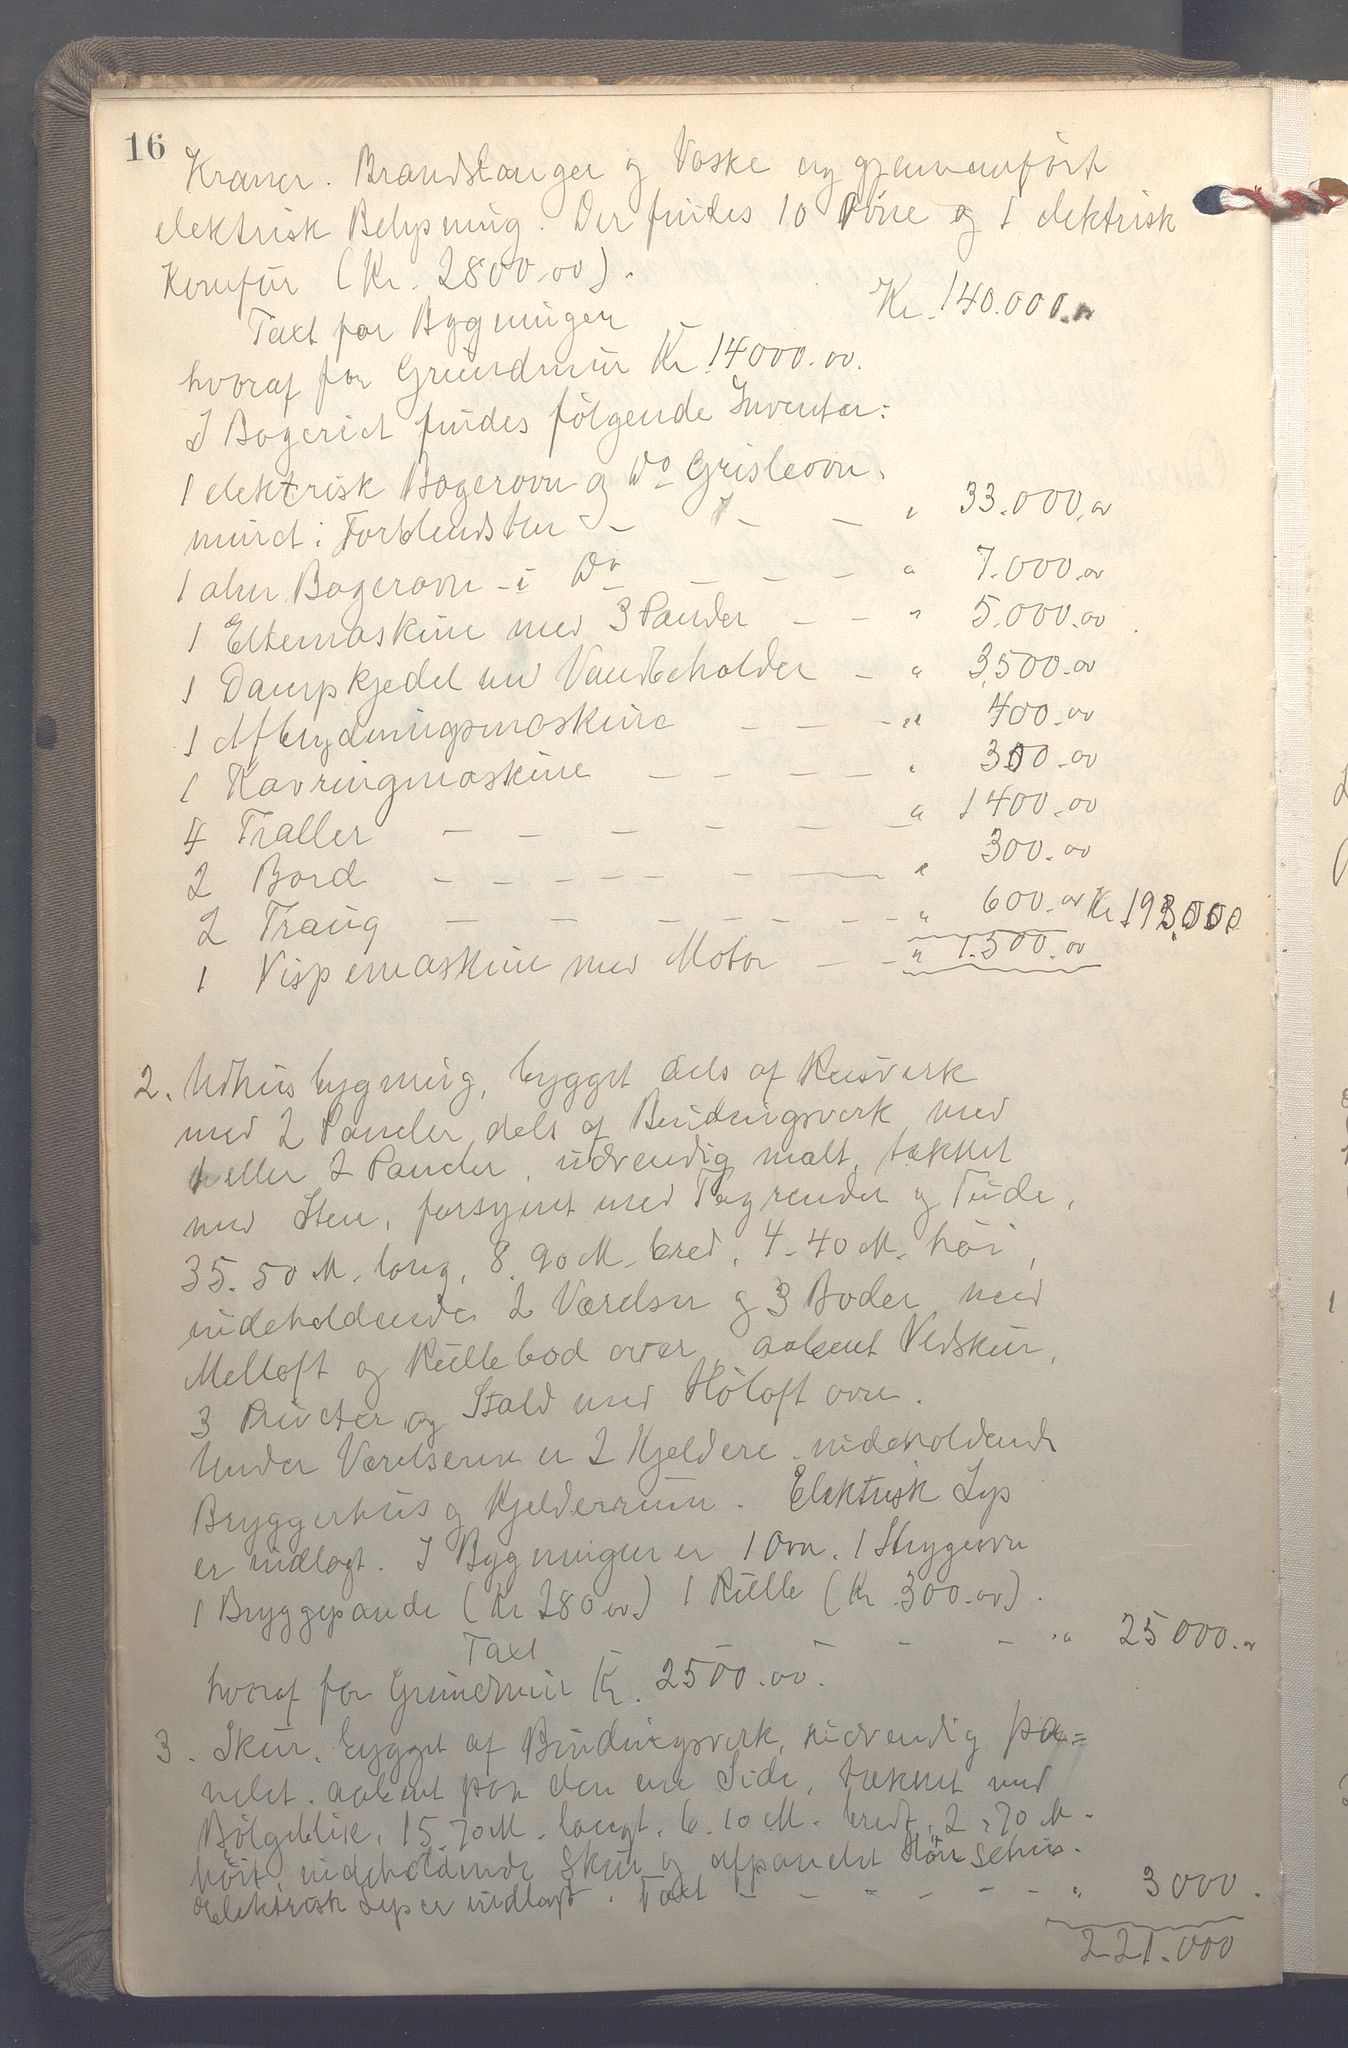 16
Kraner. Brandslanger og Vaske og gjennemført
elektrisk Belysning. Der findes 10 Ovne og 1 elektrisk
Komfür (Kr. 2800.00).
Taxt for Bygningen Kr. 140.000.00
hvoraf for Grundmür Kr. 14000.00.
I Bageriet findes følgende Inventar:
1 elektrisk Bagerovn og Do Grisleovn.
müret i Forblendsten - - - " 33.000.00
1 alm Bagerovn - i Do - - - " 7.000.00
1 Eltemaskine med 3 Pander - - " 5.000.00
1 Dampkjedel med Vandbeholder - " 3,500.00
1 Afbrydningsmaskine - - - " 400.00
1 Kavringmaskine - - - - " 300.00
4 Traller - - - - - - " 1400.00
2 Bord - - - - - - " 300.00
2 Traug - - - - - - - " 600.00 Kr 193.000
1 Vispemaskine med Motor - - " 1.500.00
2. Udhusbygning, bygget dels af Reisverk
med 2 Paneler, dels af Bindingsverk med
1 eller 2 Paneler, udvendig malt, tækket
med Sten, forsynet med Tagrender og Tüde,
35.50 M. lang, 8.90 M. bred, 4-40 M. høi,
indeholdende 2 Værelser og 3 Boder med
Melloft og Rüllebod over, aabent Vedskür,
3 Priveter og Stald med Høloft over.
Under Værelserne er 2 Kjeldere indeholdende
Bryggerhüs og Kjelderrüm. Elektrisk Lys
er indlagt. I Bygningen er 1 Ovn. 1 Strygeovn
1 Bryggepande (Kr 280.00) 1 Rülle (Kr. 300.00).
Taxt - - - - " 25000.00
hvoraf for Grundmür Kr. 2500.00.
3. Skür, bygget af Bindingsverk, udvendig pa=
nelet. aabent paa den ene Side, tækket med
Bølgeblik, 15.70 M. langt, 6.10 M. bredt, 2.70 M.
høit, indeholdende Skür og afpanelet Hønsehus.
Elektrisk Lys er indlagt. Taxt - - - - - - " 3000.
221.000